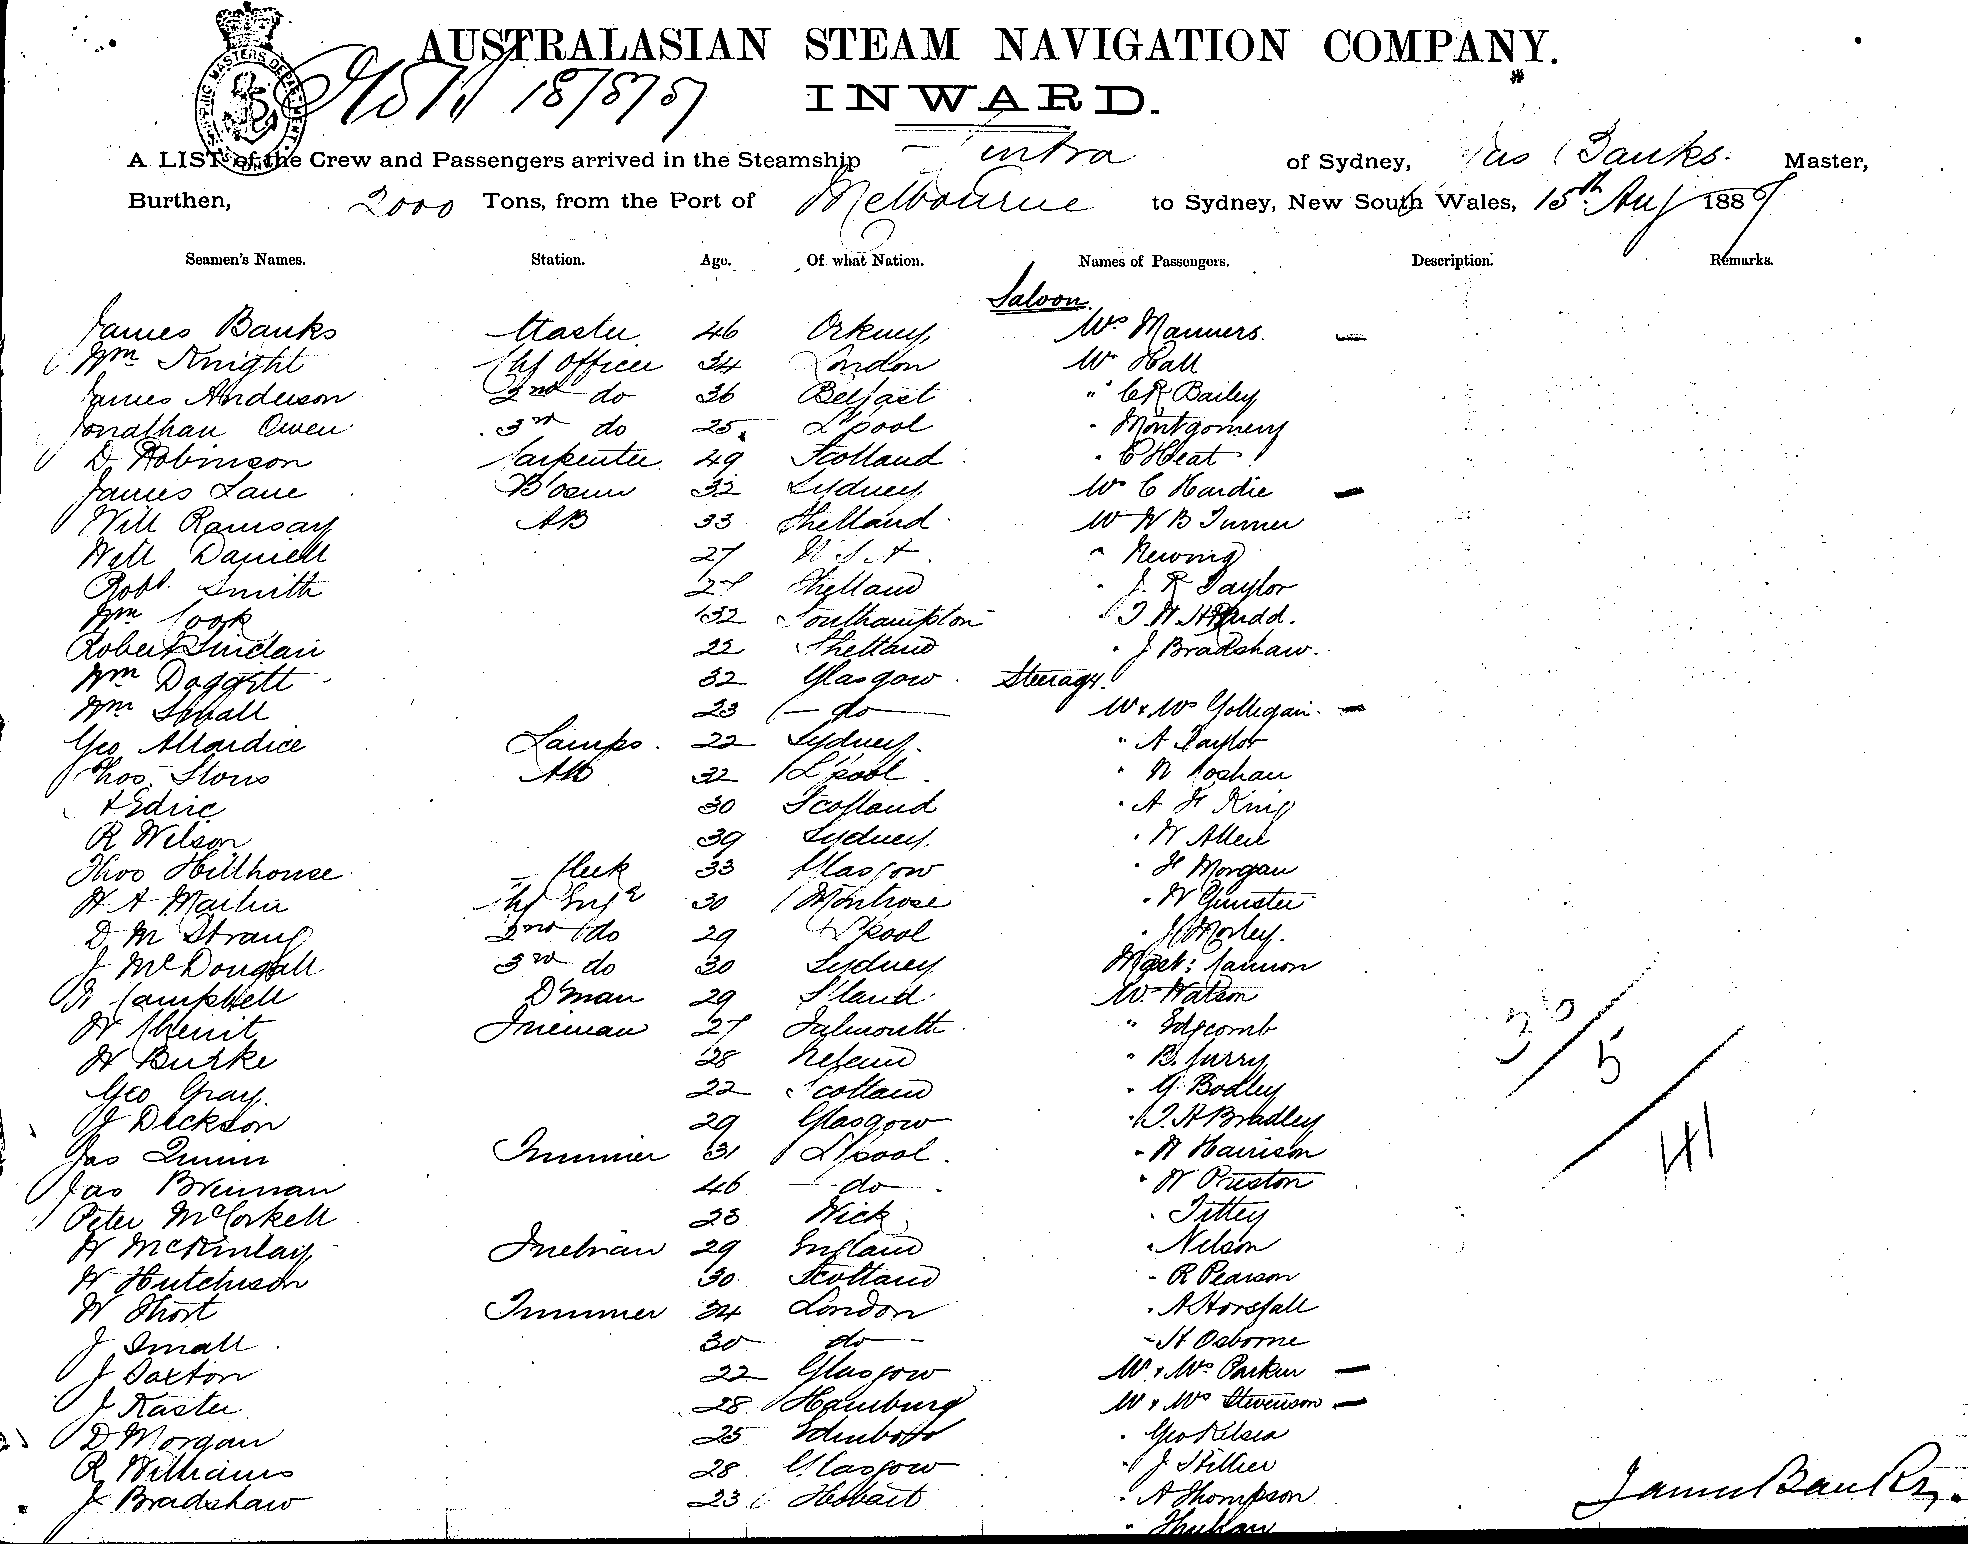 AUSTRALASIAN STEAM NAVIGATION COMPANY.
INWARD.
A LIST of the Crew and Passengers arrived in the Steamship Cintra of Sydney, Jas Banks. Master,
Burthen, 2000 Tons, from the Port of Melbourne to Sydney, New South Wales, 15th Aug 1887
Seamen's Names. Station. Age. Of what Nation. Names of Passengers. Description. Remarks.
Saloon
James Banks Master 46 Orkney Mrs Manners. —
Wm Knight Chf Officer 34 London Mr Hall
James Anderson 2nd do 36 Belfast " C R Bailey
Jonathan Owen 3rd do 25 L'pool " Montgomery
D Robinson Carpenter 49 Scotland " C Heat
James Lane B'osun 32 Sydney Mrs C Hardie —
Will Ramsay AB 33 Shetland Mr W B Turner
Will Daniell 27 U S A "
Robt Smith 27 Shetland " J. R Taylor
Wm Cook 32 Southampton " Rudd.
Robert Sinclair 22 Shetland " J Bradshaw.
Wm Doggitt 32 Glasgow Steerage.
Wm Small 23 — do — Mr & Mrs Golligan —
Geo Allardice Lamps 22 Sydney " A Taylor
Thos Stous AB 32 L'pool "
Edric 30 Scotland " A H King
R Wilson 39 Sydney " W Allen
Thos Hillhouse 33 Glasgow " H Morgan
W A Martin Chf Engr 30 Montrose " W Gunster
D M Strang 2nd do 29 L'pool " Morley.
J McDougall 3rd do 30 Sydney Mast: Cannon
Campbell D'man 29 S'land Mr Watson
W Chenit Fireman 27 Falmouth " Edgcomb
W Burke 28 " B. Curry
Geo Gray. 22 Scotland " G Bodley
J Dickson 29 Glasgow " T. H Bradley
Jas Quinn Trimmer 31 L'pool " W Harrison
Jas Brennan 46 — do — " W Preston
Peter McCorkell 23 Wick " Tittey
W McKinlay Fireman 29 England " Nelson
W Hutchison 30 Scotland " R Pearson
W Short Trimmer 24 London " A Horsfall
J Small 30 do — " H Osborne
J Saxton 22 Glasgow Mr & Mrs Parker —
J Kaster 28 Hamburg Mr & Mrs Stevenson —
D Morgan 25 Edinboro " Geo Kelsea
R Williams 28 Glasgow " J Hillier
J Bradshaw 23 Hobart " A Thompson
36
5
41
James Banks